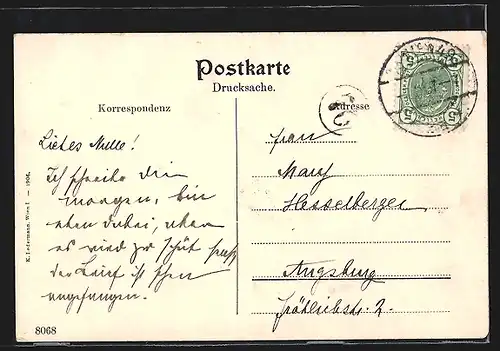 Postkarte
Drucksache.
Korrespondenz
Adresse
Liebes Mulle!
Ich schreibe dir
morgen, bin
eben dabei,
es wird zu spät
der Brief ist schon
angefangen.
Frau
Mary
Hesselberger
Augsburg
Fröhlichstr. 2.
K. Ledermann, Wien I. — 1904.
8068